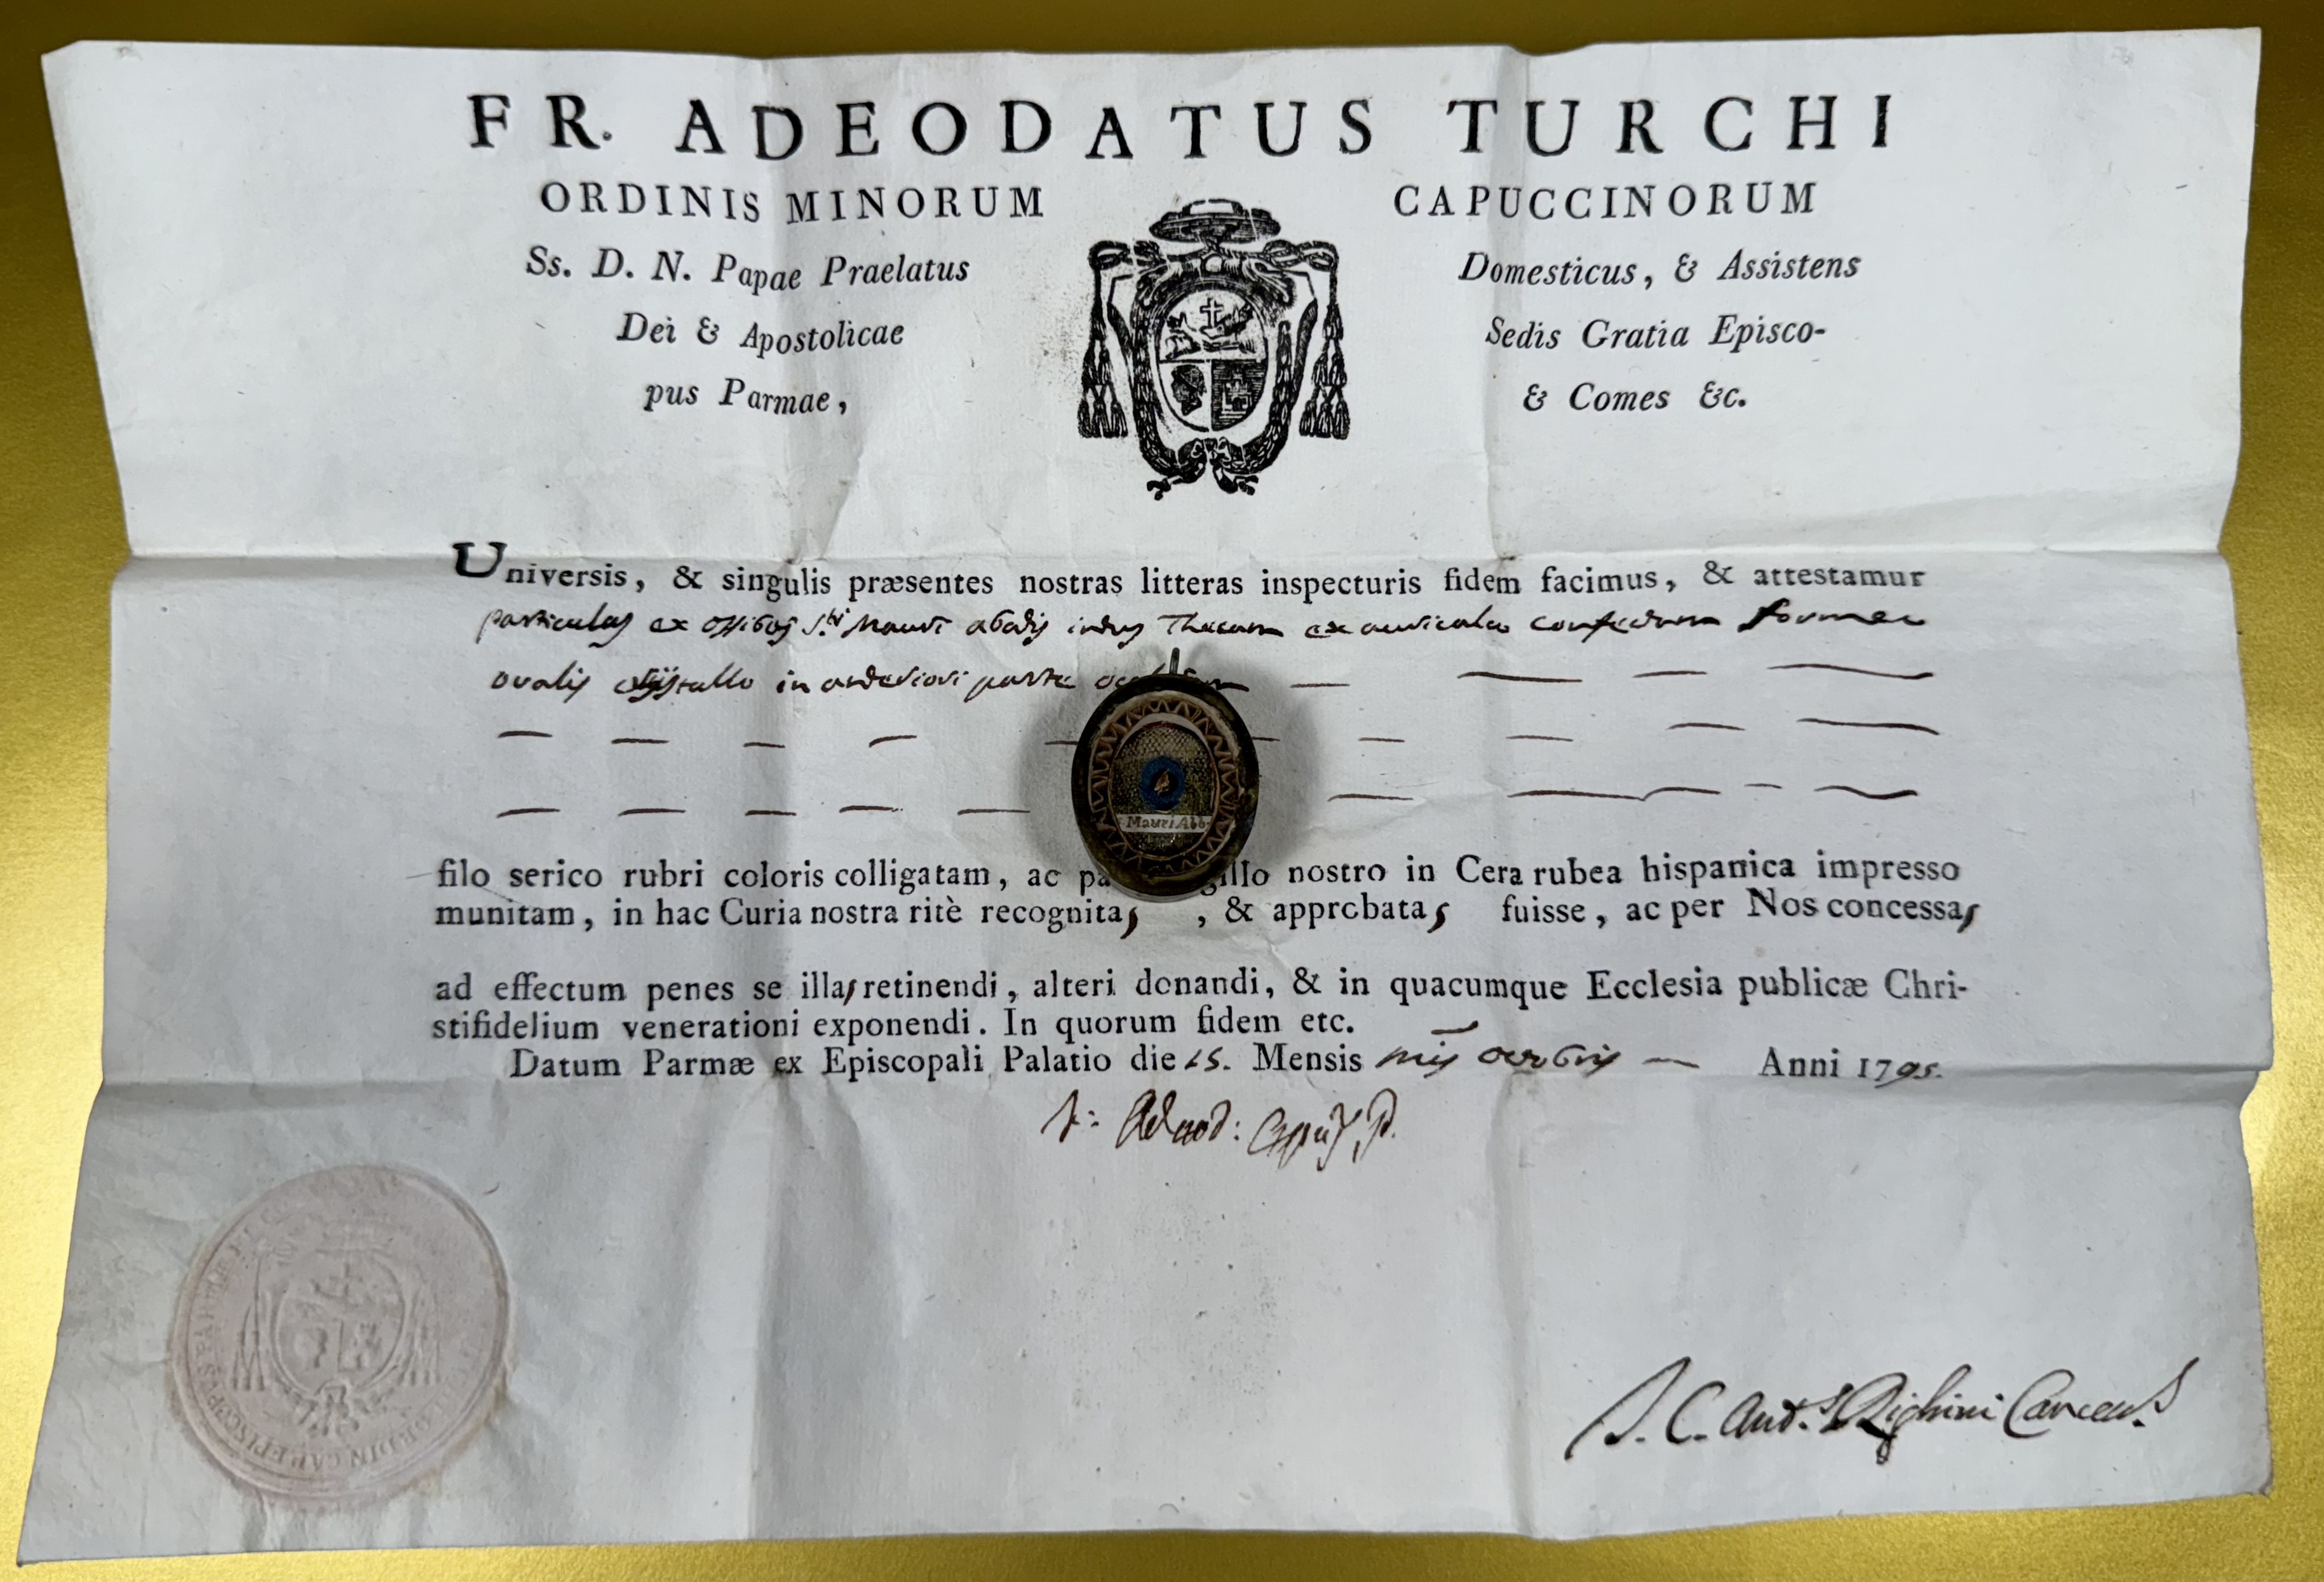 FR. ADEODATUS TURCHI
ORDINIS MINORUM CAPUCCINORUM
Ss. D. N. Papae Praelatus Domesticus, & Assistens
Dei & Apostolicae Sedis Gratia Episco-
pus Parmae, & Comes &c.
Universis, & singulis præsentes nostras litteras inspecturis fidem facimus, & attestamur
particulas ex ossibus S.ti Mauri abatis intus Thecam ex auricalco confectam formae
ovalis in anteriori parte
Mauri Abb
filo serico rubri coloris colligatam, ac nostro in Cera rubea hispanica impresso
munitam, in hac Curia nostra ritè recognitas, & approbatas fuisse, ac per Nos concessas
ad effectum penes se illas retinendi, alteri donandi, & in quacumque Ecclesia publicæ Chri-
stifidelium venerationi exponendi. In quorum fidem etc.
Datum Parmæ ex Episcopali Palatio die 15. Mensis Anni 1795.
F: Adeod:
Ant.s Righini Cancell.s